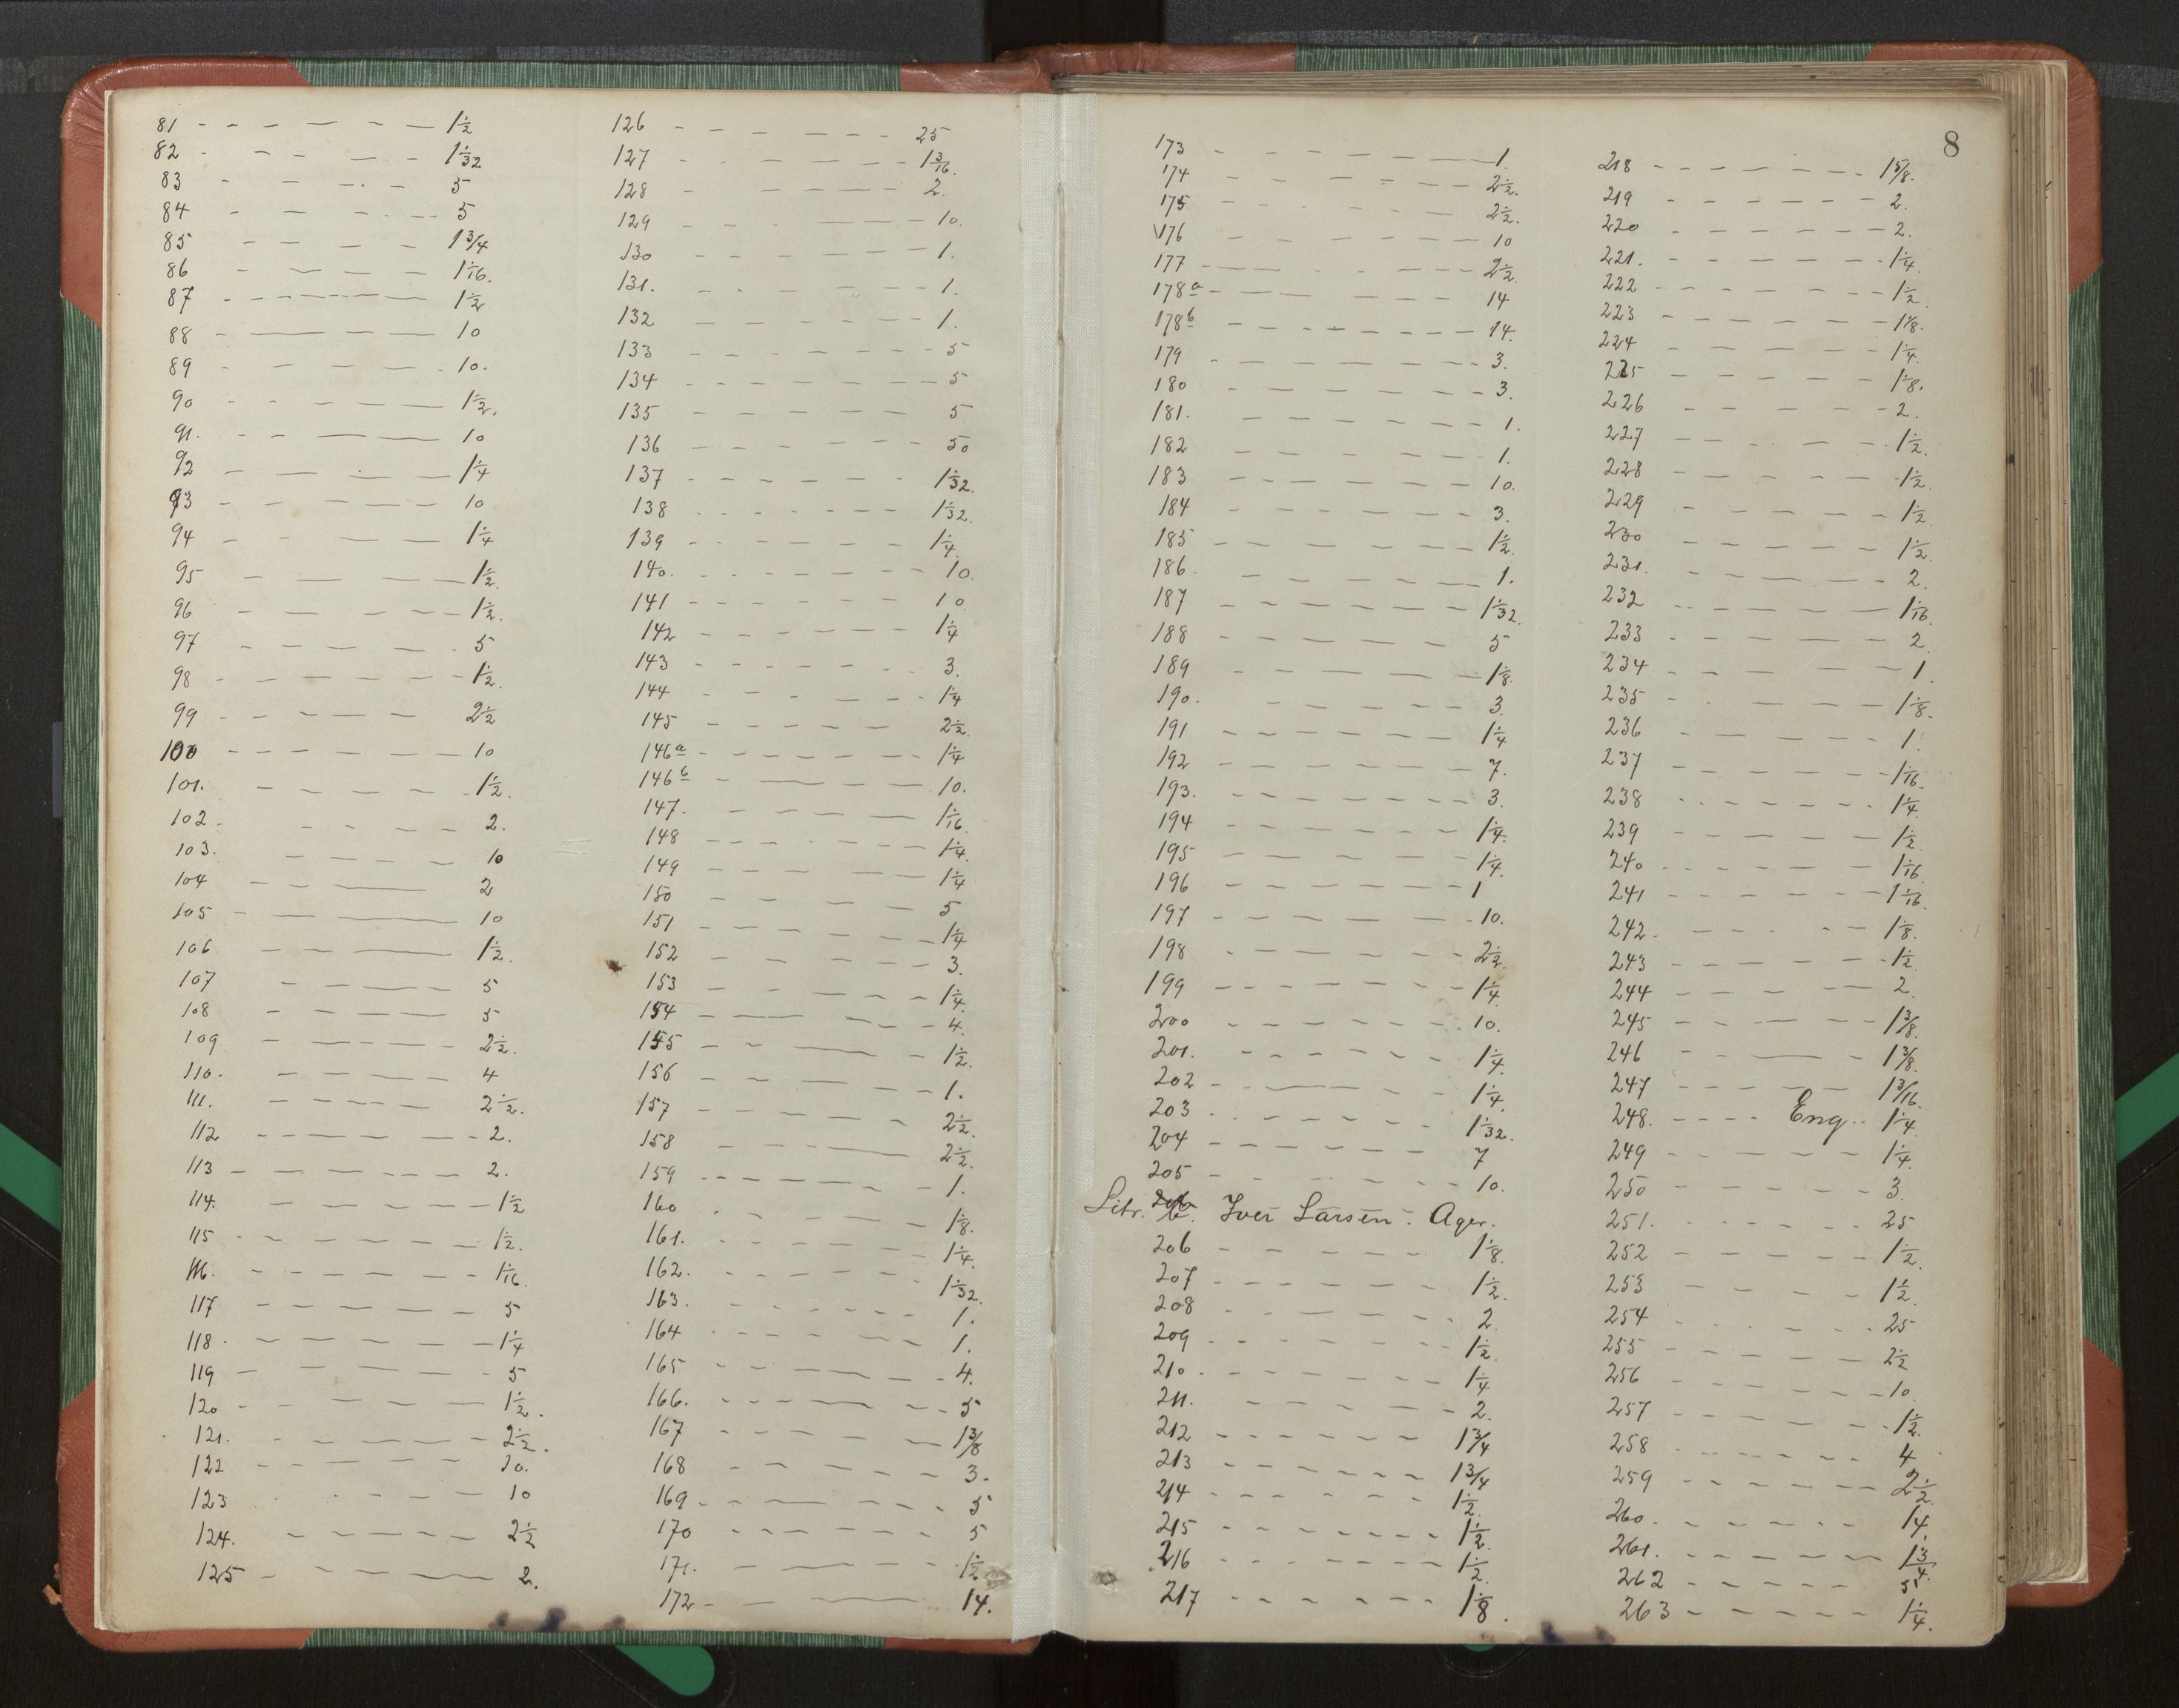 81 - - - - - - 1 1/2
82 - - - - - 1 1/32
83 - - - - - 5
84 - - - - - - 5
85 - - - - 1 3/4
86 - - - - 1 1/16.
87 - - - - - - 1 1/2
88 - - - - 10
89 - - - - - 10.
90 - - - - - 1 1/2.
91. - - - - 10
92 - - - - 1 1/4
93 - - - - - 10
94 - - - - - 1 1/4
95 - - - - 1 1/2.
96 - - - - - 1 1/2.
97 - - - - - 5
98 - - - - - - 1 1/2.
99 - - - - - 2 1/2
100 - - - - - - 10
101. - - - - - - 1 1/2.
102. - - - - - 2.
103. - - - - - 10
104 - - - 2
105 - - - 10
106 - - - 1 1/2.
107 - - - - 5
108 - - - - 5
109 - - - - - 2 1/2.
110. - - - - 4
111. - - - - - 2 1/2.
112 - - - - - - 2.
113 - - - - - - 2.
114. - - - - - 1 1/2
115 - - - - - - - 1 1/2.
116. - - - - - - 1 1/16.
117 - - - - - 5
118. - - - - - - 1 1/4
119 - - - - - 5
120 - - - - - 1 1/2.
121. - - - - - 2 1/2.
122 - - - - - 10.
123 - - - - 10
124. - - - - - 2 1/2
125 - - - - - 2.
126 - - - - - - 25
127 - - - - - - 1 3/16.
128 - - - - - 2.
129 - - - - 10.
130 - - - - - - 1.
131. - - - - - - 1.
132 - - - - - 1.
133 - - - - - - 5
134 - - - - - - 5
135 - - - - - 5
136 - - - - - - 50
137 - - - - - - 1 1/32.
138 - - - - - - - 1 1/32.
139 - - - - - - 1 1/4.
140. - - - - - - 10.
141 - - - - - - 10
142 - - - - - - 1 1/4
143 - - - - - - 3.
144 - - - - - - 1 1/4
145 - - - - - - 2 1/2.
146a - - - - - - 1 1/4
146b - - - - 10.
147. - - - - - 1 1/16.
148 - - - - - - 1 1/4.
149 - - - - - - 1 1/4
150 - - - - - - 5
151 - - - - - - - 1 1/4
152 - - - - - - 3.
153 - - - - - - - 1 1/4.
154 - - - - - - 4.
155 - - - - 1 1/2.
156 - - - - - - 1.
157 - - - - - - 2 1/2.
158 - - - 2 1/2.
159 - - - - - - - 1.
160 - - - - - - 1 1/8.
161. - - - - - - 1 1/4.
162. - - - - - - 1 1/32.
163. - - - - - - 1.
164 - - - - - - 1.
165 - - - - - - 4.
166. - - - - - - 5
167 - - - - - - 1 3/8
168 - - - - - - 3.
169 - - - - - - 5
170 - - - - - - 5
171. - - - - 1 1/2
172 - - - - 14.
8
173 - - - - - 1.
174 - - - - - - 2 1/2.
175 - - - - - - 2 1/2.
176 - - - - - - 10
177 - - - - - - 2 1/2
178a - - - - - 14
178b - - - - - - - 14.
179 - - - - - - 3.
180 - - - - - - 3.
181. - - - - - - 1.
182 - - - - - - 1.
183 - - - - - - 10.
184 - - - - - - 3.
185 - - - - - - 1 1/2.
186. - - - - - - 1.
187 - - - - - - 1 1/32.
188 - - - - - - 5
189 - - - - - - 1 1/8.
190. - - - - - - 3.
191 - - - - - - 1 1/4
192 - - - - - - 7.
193. - - - - - - 3.
194 - - - - - - 1 1/4.
195 - - - - - 1 1/4.
196 - - - - - - 1
197 - - - - - - 10.
198 - - - - - - 2 1/2.
199 - - - - - - - 1 1/4.
200 - - - - - - 10.
201. - - - - - - 1 1/4.
202 - - - - - 1 1/4.
203 - - - - - - 1 1/32.
204 - - - - - - 7
205 - - - - - - 10.
Litr. b. Iver Larsen. Ager.
206 - - - - - - 1 1/8.
207 - - - - - - 1 1/2.
208 - - - - - 2.
209 - - - - - - 1 1/2.
210. - - - - - - 1 1/4
211. - - - - - - 2.
212 - - - - - - 1 3/4
213 - - - - - - 1 3/4
214 - - - - - - 1 1/2.
215 - - - - - - 1 1/2.
216 - - - - - - 1 1/2.
217 - - - - - - 1 1/8.
218 - - - - - - 1 5/8.
219 - - - - - - 2.
220 - - - - - - 2.
221. - - - - - - 1 1/4.
222 - - - - - - 1 1/2.
223 - - - - - - 1 1/8.
224 - - - - - - 1 1/4.
225 - - - - - - 1 1/8.
226 - - - - - 2.
227 - - - - - - 1 1/2.
228 - - - - - - 1 1/2.
229 - - - - - 1 1/2.
230 - - - - - - 1 1/2
231. - - - - - - 2.
232 - - - - - - 1 1/16.
233 - - - - - - 2.
234 - - - - - 1.
235 - - - - - - 1 1/8.
236 - - - - - 1.
237 - - - - - - 1 1/16.
238 - - - - - - - 1 1/4.
239 - - - - - - 1 1/2.
240 - - - - - - 1 1/16.
241 - - - - - - 1 1/16.
242. - - - - - 1 1/8.
243 - - - - - - 1 1/2.
244 - - - - - 2.
245 - - - - - 1 3/8.
246 - - - - 1 3/8.
247 - - - - - - 1 3/16.
248. - - - - Eng.. 1 1/4.
249 - - - - - - 1 1/4.
250 - - - - - 3.
251. - - - - - - 25
252 - - - - - - 1 1/2.
253 - - - - - - 1 1/2.
254 - - - - - - 25
255 - - - - - - 2 1/2
256 - - - - - - 10.
257 - - - - - - 1 1/2.
258 - - - - - - 4
259 - - - - - - 2 1/2.
260. - - - - - - 14.
261. - - - - - - 1 3/4.
262 - - - - - - 5
263 - - - - - - 1 1/4.